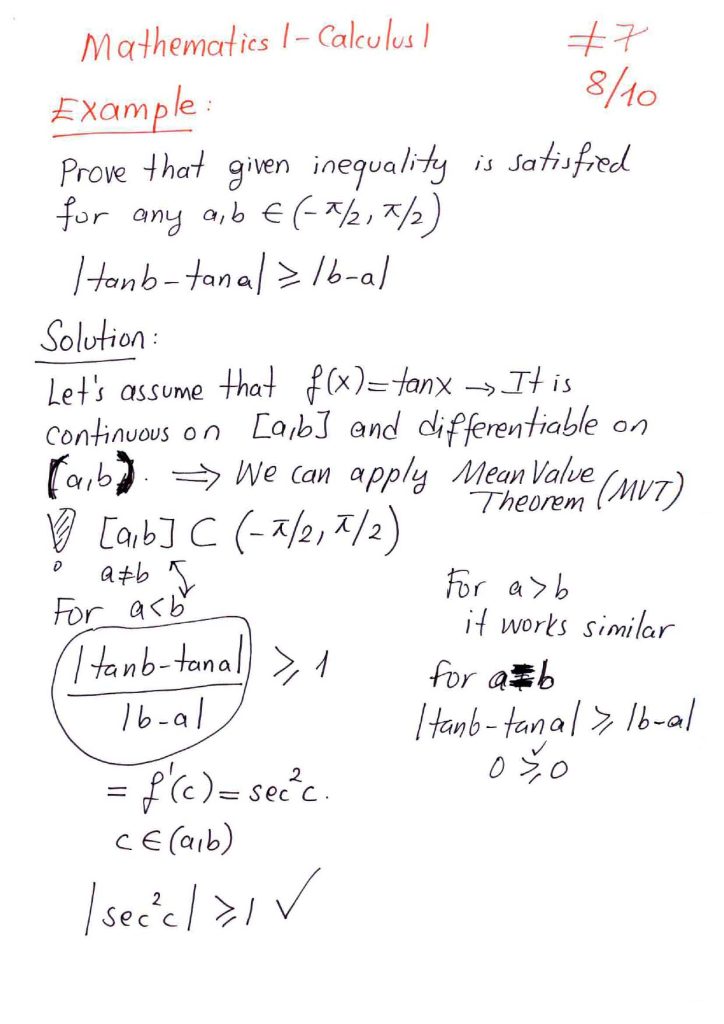 Mathematics 1 - Calculus 1
#7
8/10
Example:
Prove that given inequality is satisfied
for any a,b ∈ (-π/2, π/2)
|tanb - tana| ≥ |b-a|
Solution:
Let's assume that f(x) = tanx → It is
continuous on [a,b] and differentiable on
(a,b). ⇒ We can apply Mean Value
Theorem (MVT)
[a,b] ⊂ (-π/2, π/2)
a≠b
For a<b
|tanb - tana| ≥ 1
|b-a|
= f'(c) = sec²c.
c ∈ (a,b)
|sec²c| ≥ 1 ✓
For a>b
it works similar
for a=b
|tanb - tana| ≥ |b-a|
0 ≥ 0 ✓